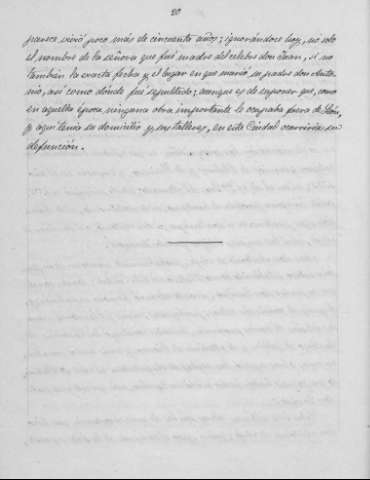 20
parece vivió poco más de cincuenta años; ignorándose hoy, no solo
el nombre de la señora que fué madre del célebre don Juan, si no
tambien la exacta fecha y el lugar en que murió su padre don Anto-
nio, así como dónde fué sepultado; aunque es de suponer que, como
en aquella época ninguna obra importante le ocupaba fuera de León,
y aquí tenia su domicilio y sus talleres, en esta Ciudad ocurriría su
defunción.